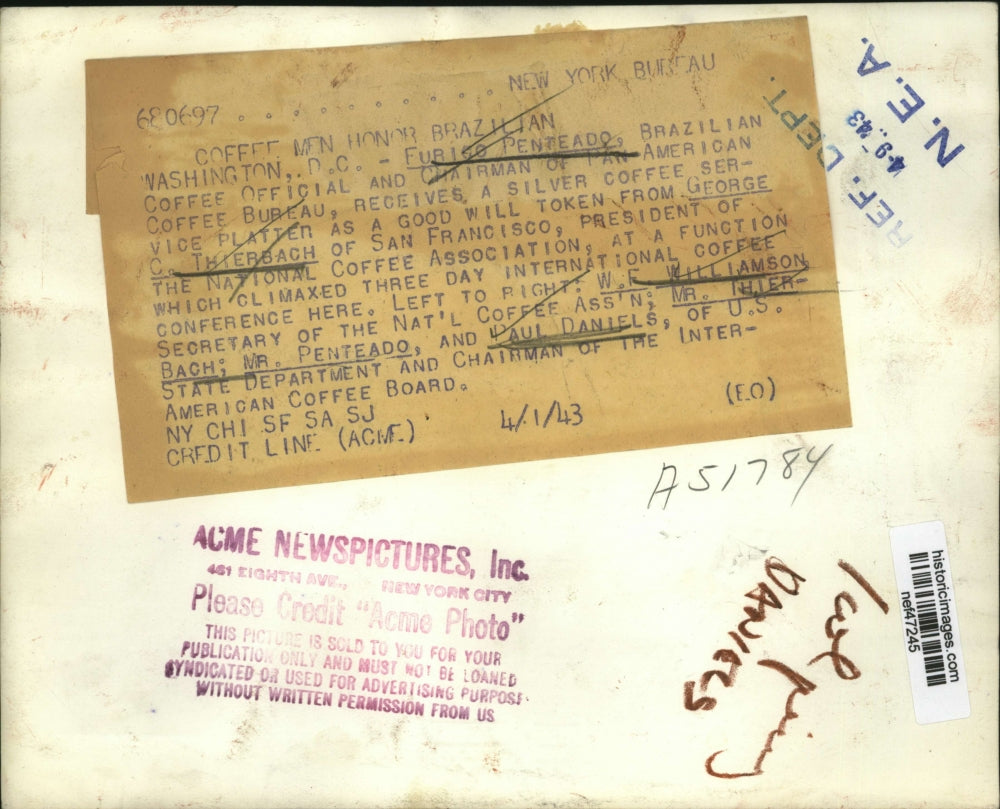 680697 . . . . . . . . . . NEW YORK BUREAU
COFFEE MEN HONOR BRAZILIAN
WASHINGTON, D.C. - EURICO PENTEADO, BRAZILIAN
COFFEE OFFICIAL AND CHAIRMAN OF PAN AMERICAN
COFFEE BUREAU, RECEIVES A SILVER COFFEE SER-
VICE PLATTER AS A GOOD WILL TOKEN FROM GEORGE
C. THIERBACH OF SAN FRANCISCO, PRESIDENT OF
THE NATIONAL COFFEE ASSOCIATION, AT A FUNCTION
WHICH CLIMAXED THREE DAY INTERNATIONAL COFFEE
CONFERENCE HERE. LEFT TO RIGHT: W.F. WILLIAMSON
SECRETARY OF THE NAT'L COFFEE ASS'N; MR. THIER-
BACH; MR. PENTEADO, AND PAUL DANIELS, OF U.S.
STATE DEPARTMENT AND CHAIRMAN OF THE INTER-
AMERICAN COFFEE BOARD.
NY CHI SF SA SJ
CREDIT LINE (ACME) 4/1/43 (EO)
REF. DEPT.
4-9-43
N. E. A.
A51784
ACME NEWSPICTURES, Inc.
461 EIGHTH AVE., NEW YORK CITY
Please Credit "Acme Photo"
THIS PICTURE IS SOLD TO YOU FOR YOUR
PUBLICATION ONLY AND MUST NOT BE LOANED
SYNDICATED OR USED FOR ADVERTISING PURPOSES
WITHOUT WRITTEN PERMISSION FROM US
DANIELS
historicimages.com
nef47245